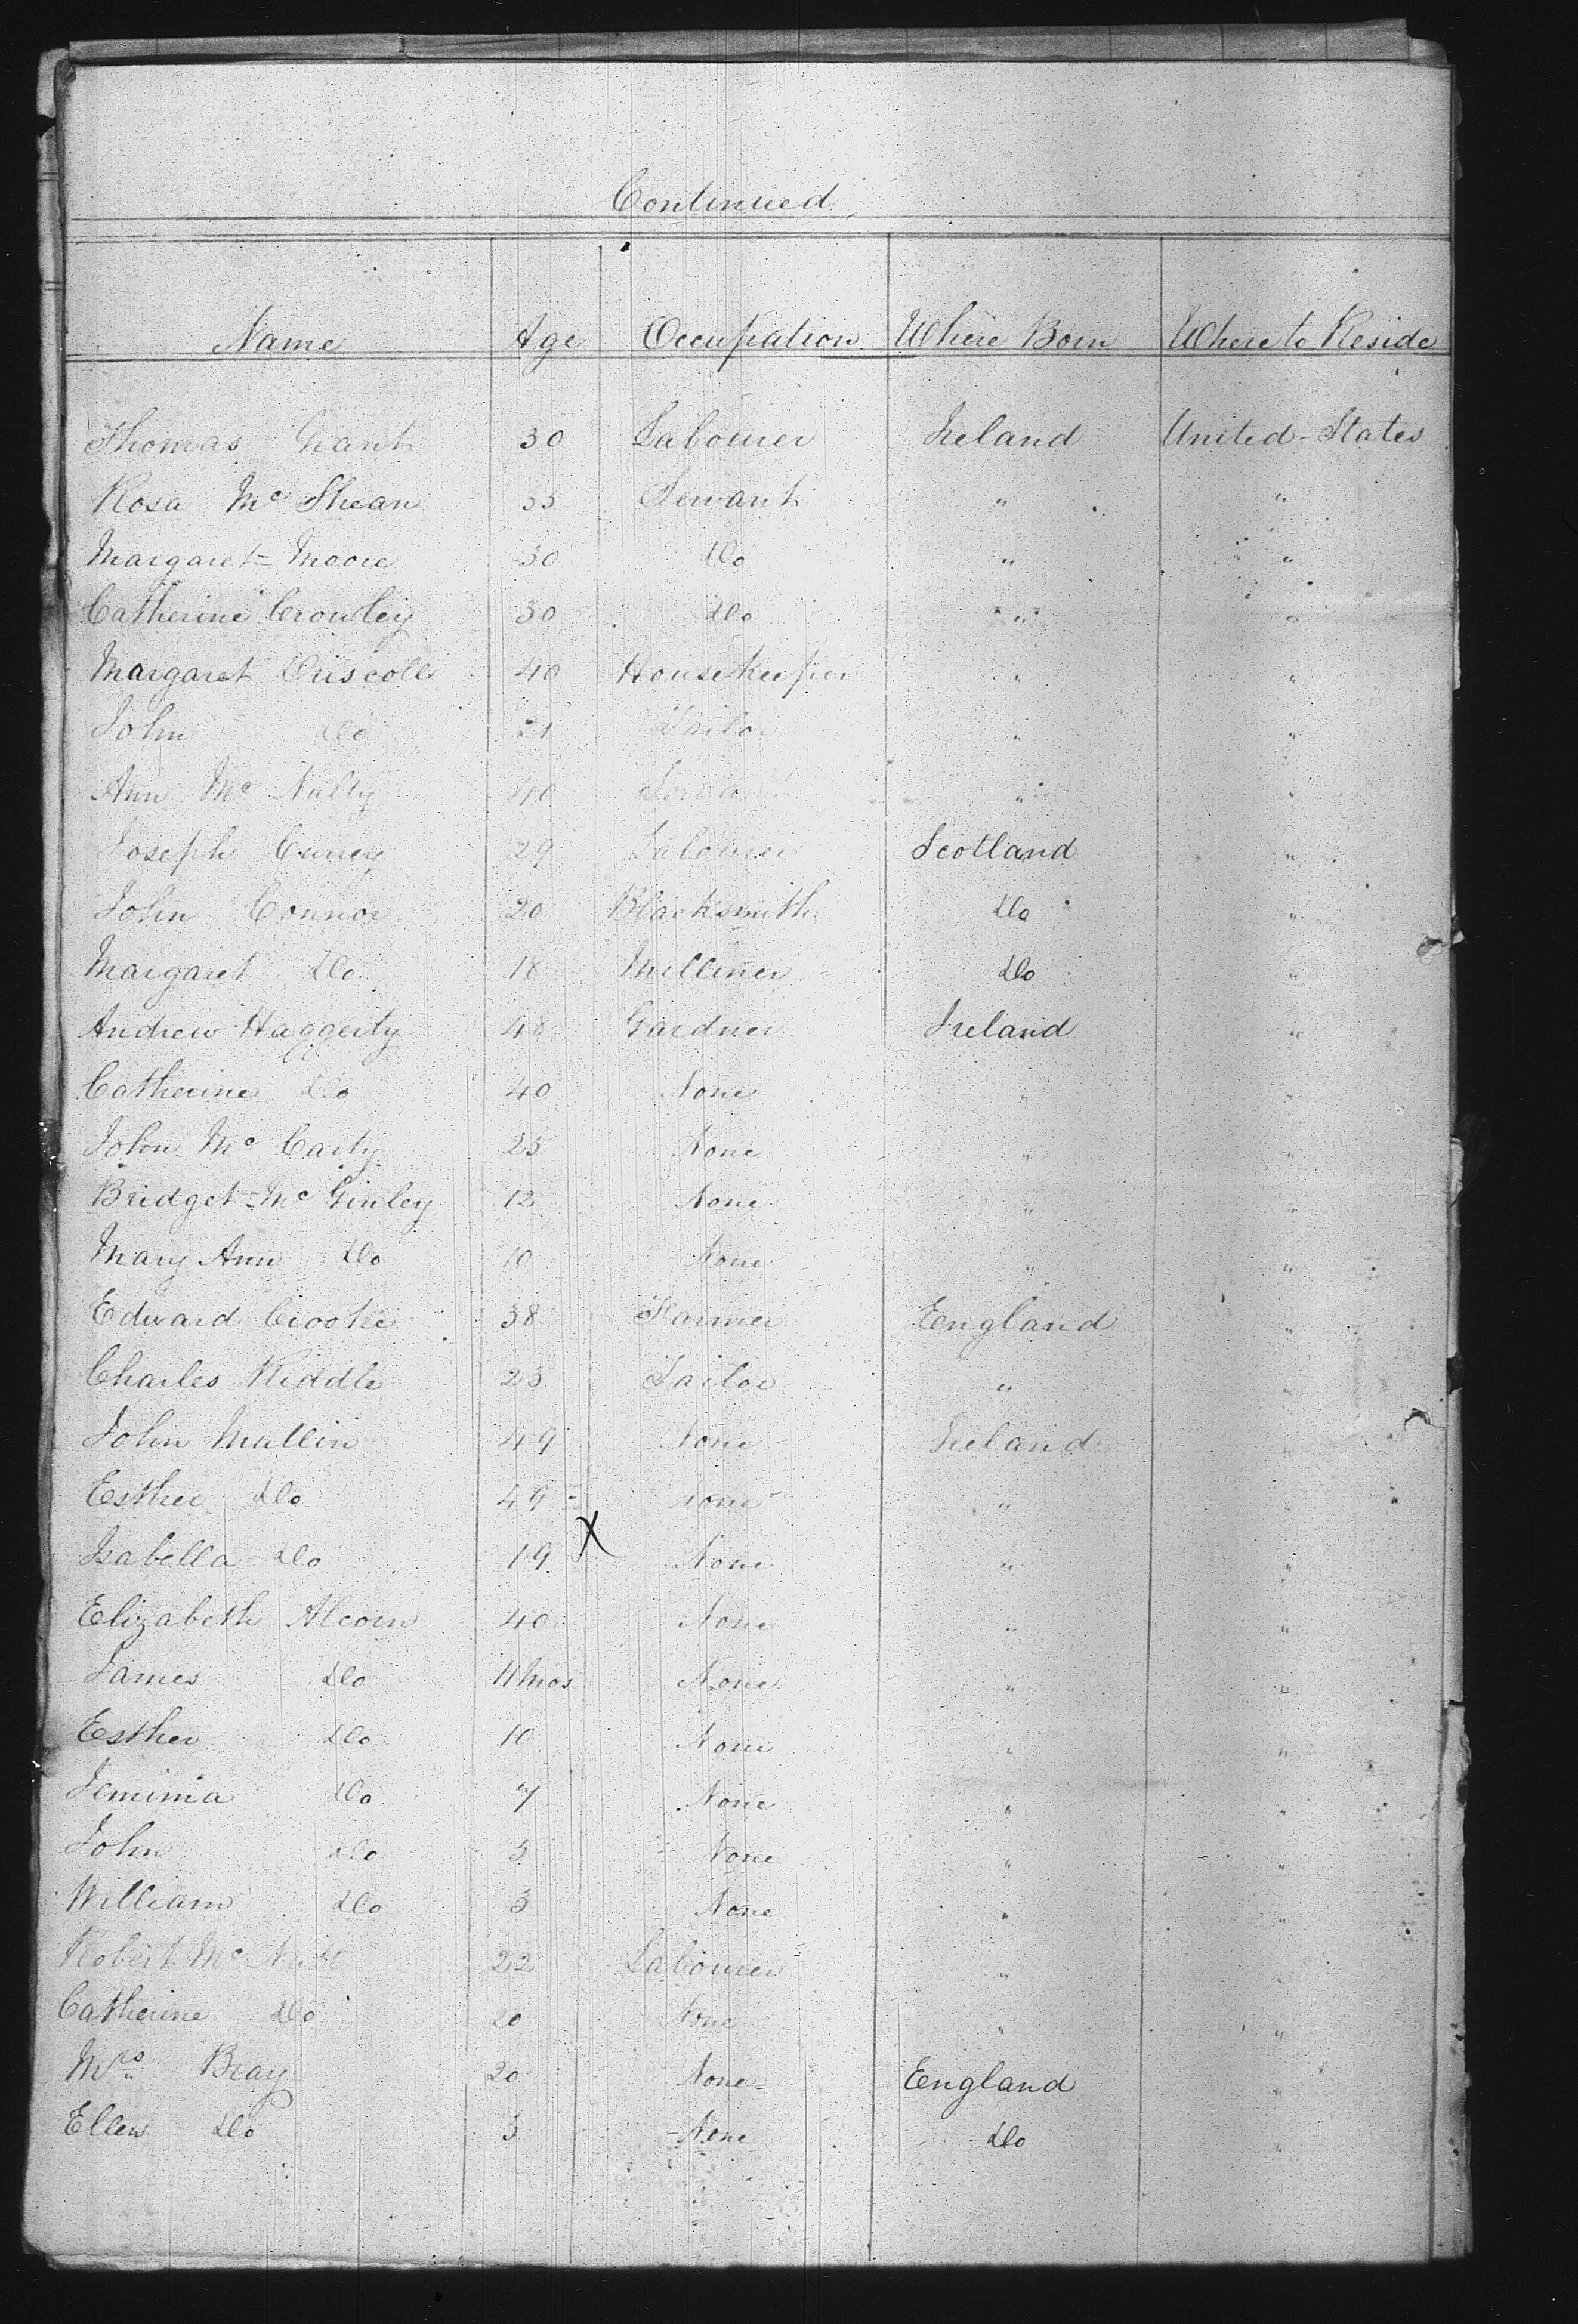 Continued
Name Age Occupation Where Born Where to Reside
Thomas Grant 30 Labourer Ireland United States
Rosa Mc Shean 35 Servant " "
Margaret Moore 30 Do " "
Catherine Crowley 30 Do " "
Margaret Driscoll 40 Housekeeper " "
John Do 21 " "
Ann Mc Nulty 40 Servant " "
Joseph 29 Labourer Scotland "
John Connor 20 Blacksmith Do "
Margaret Do 18 Milliner Do "
Andrew Haggerty 48 Gardner Ireland "
Catherine Do 40 None " "
John Mc Carty 25 None " "
Bridget Mc Ginley 12 None " "
Mary Ann Do 10 None " "
Edward Crooke 38 Farmer England "
Charles Riddle 23 " "
John Mullin 49 None Ireland "
Esther Do 49 None " "
Isabella Do 19 X None " "
Elizabeth Alcorn 40 None " "
James Do 11 mos None " "
Esther Do 10 None " "
Jemima Do 7 None " "
John Do 5 None " "
William Do 3 None " "
Robert Mc 22 Labourer " "
Catherine Do 20 None " "
Mrs Bray 20 None England "
Ellen Do 3 None Do "